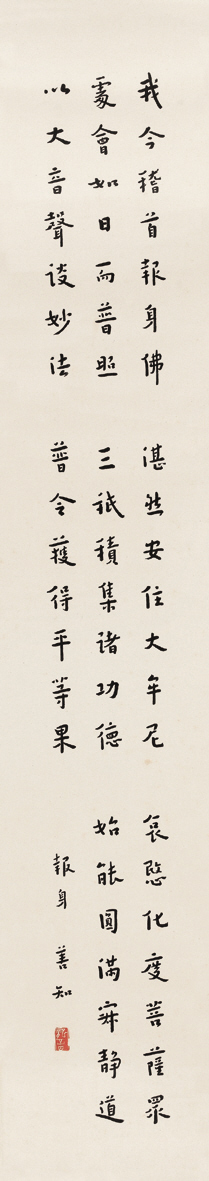 我今稽首報身佛 湛然安住大牟尼 哀愍化度菩薩眾
處會如日而普照 三祇積集諸功德 始能圓滿寂靜道
以大音聲談妙法 普令獲得平等果
報身 善知